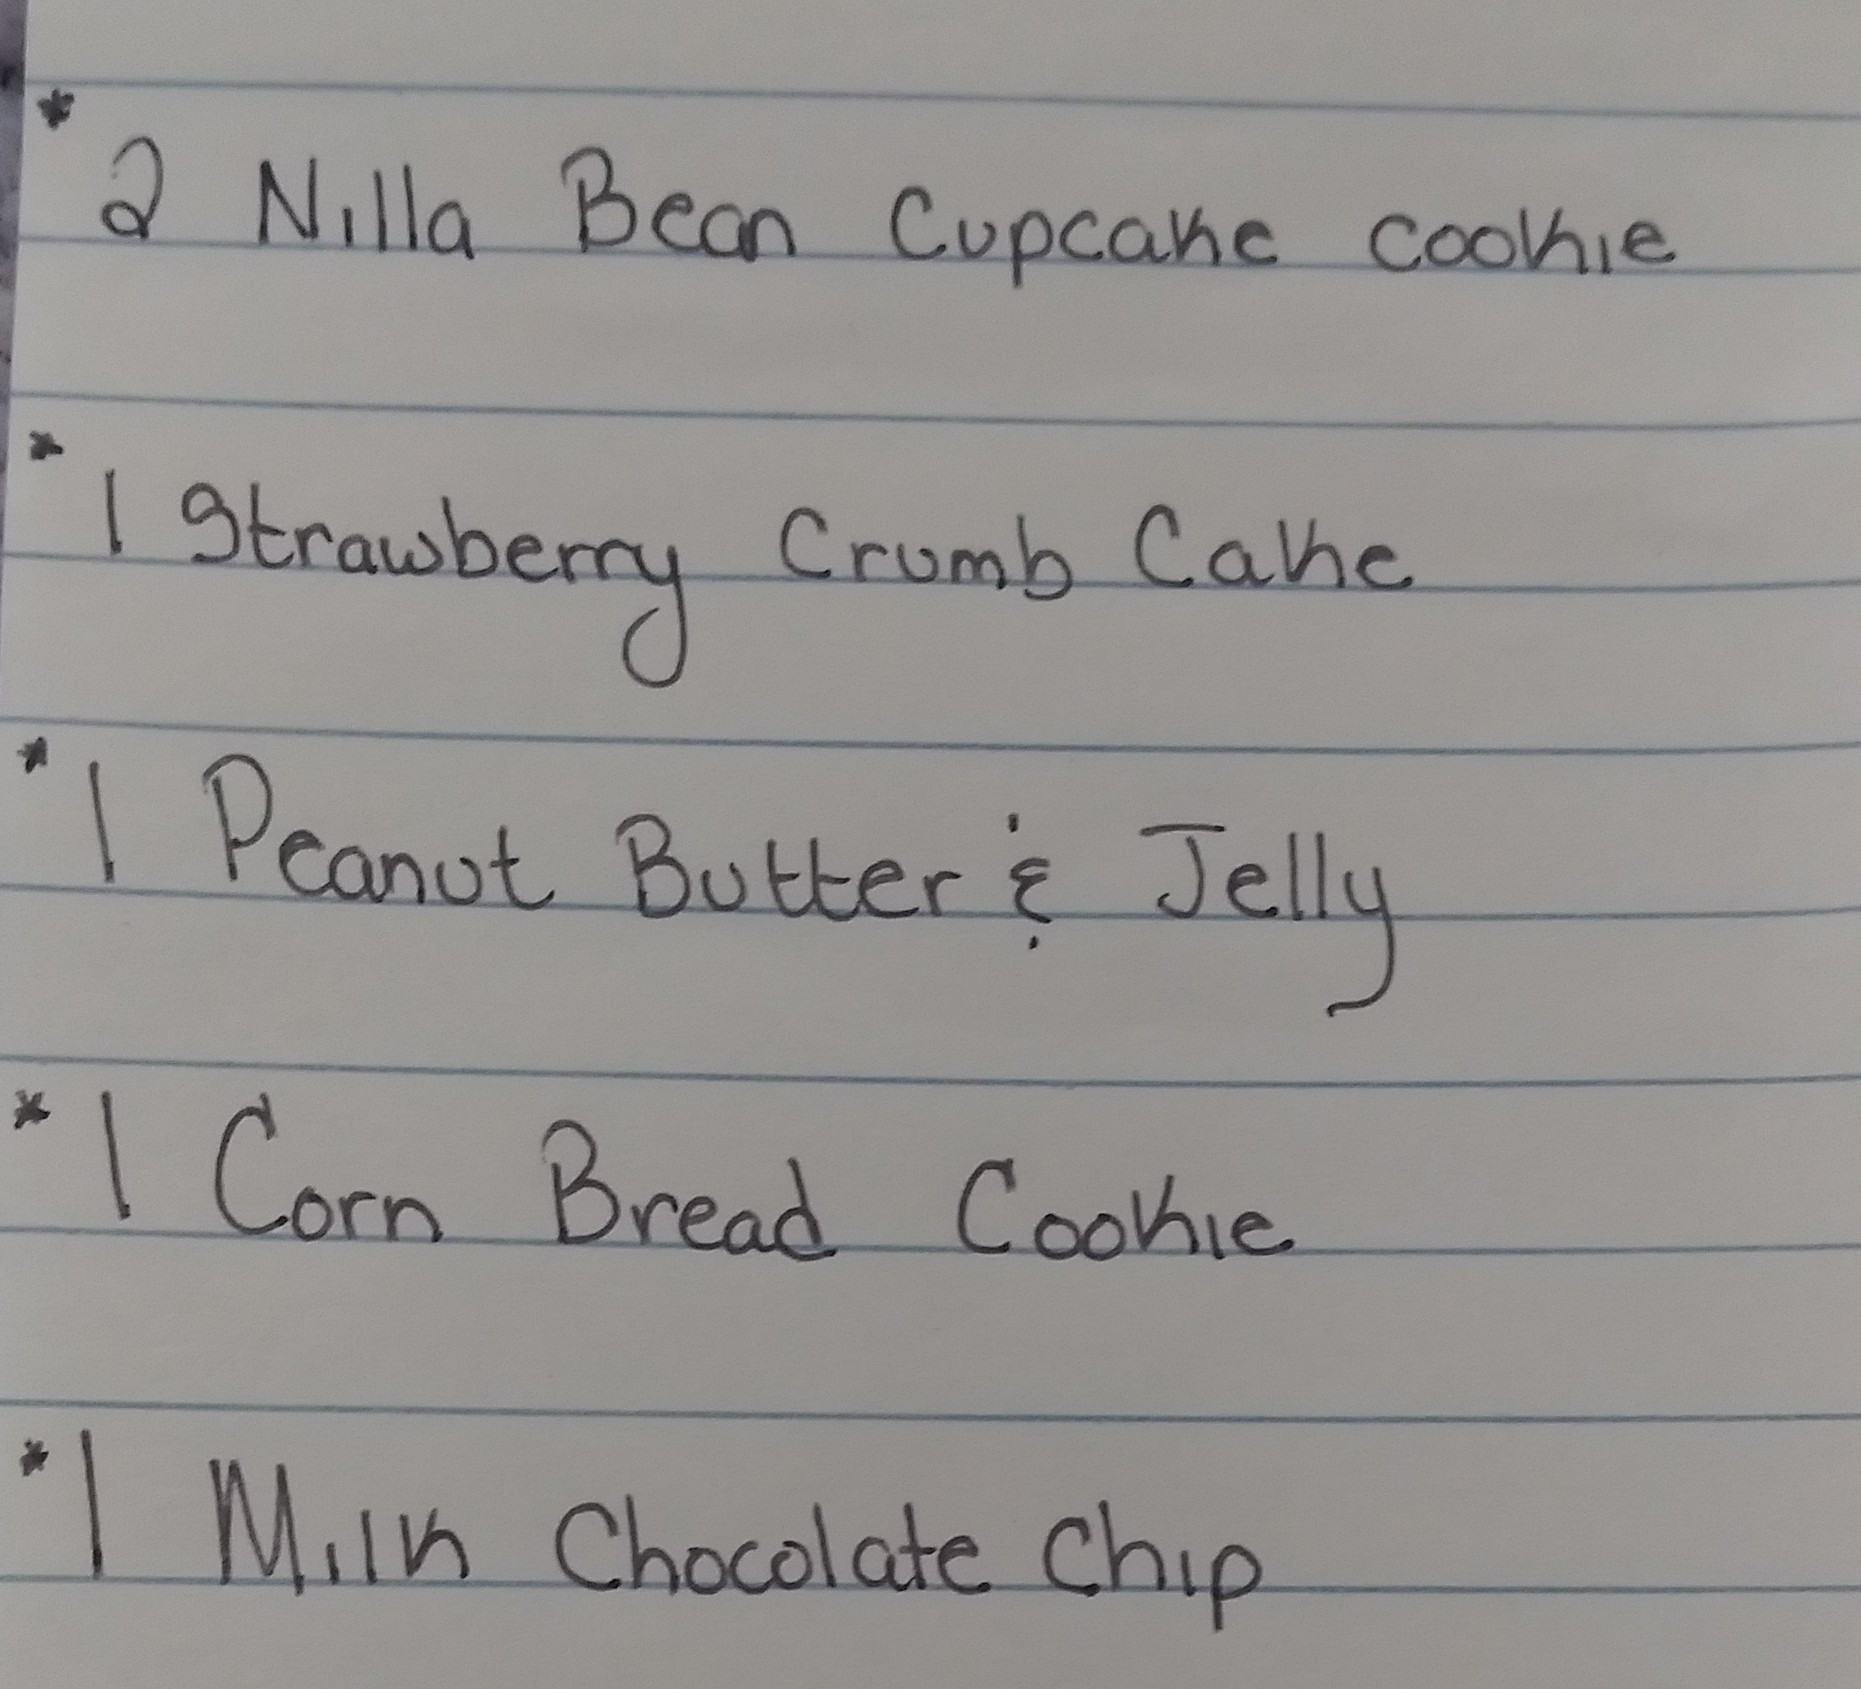 * 2 Nilla Bean Cupcake cookie
* 1 Strawberry Crumb Cake
* 1 Peanut Butter & Jelly
* 1 Corn Bread Cookie
* 1 Milk Chocolate Chip